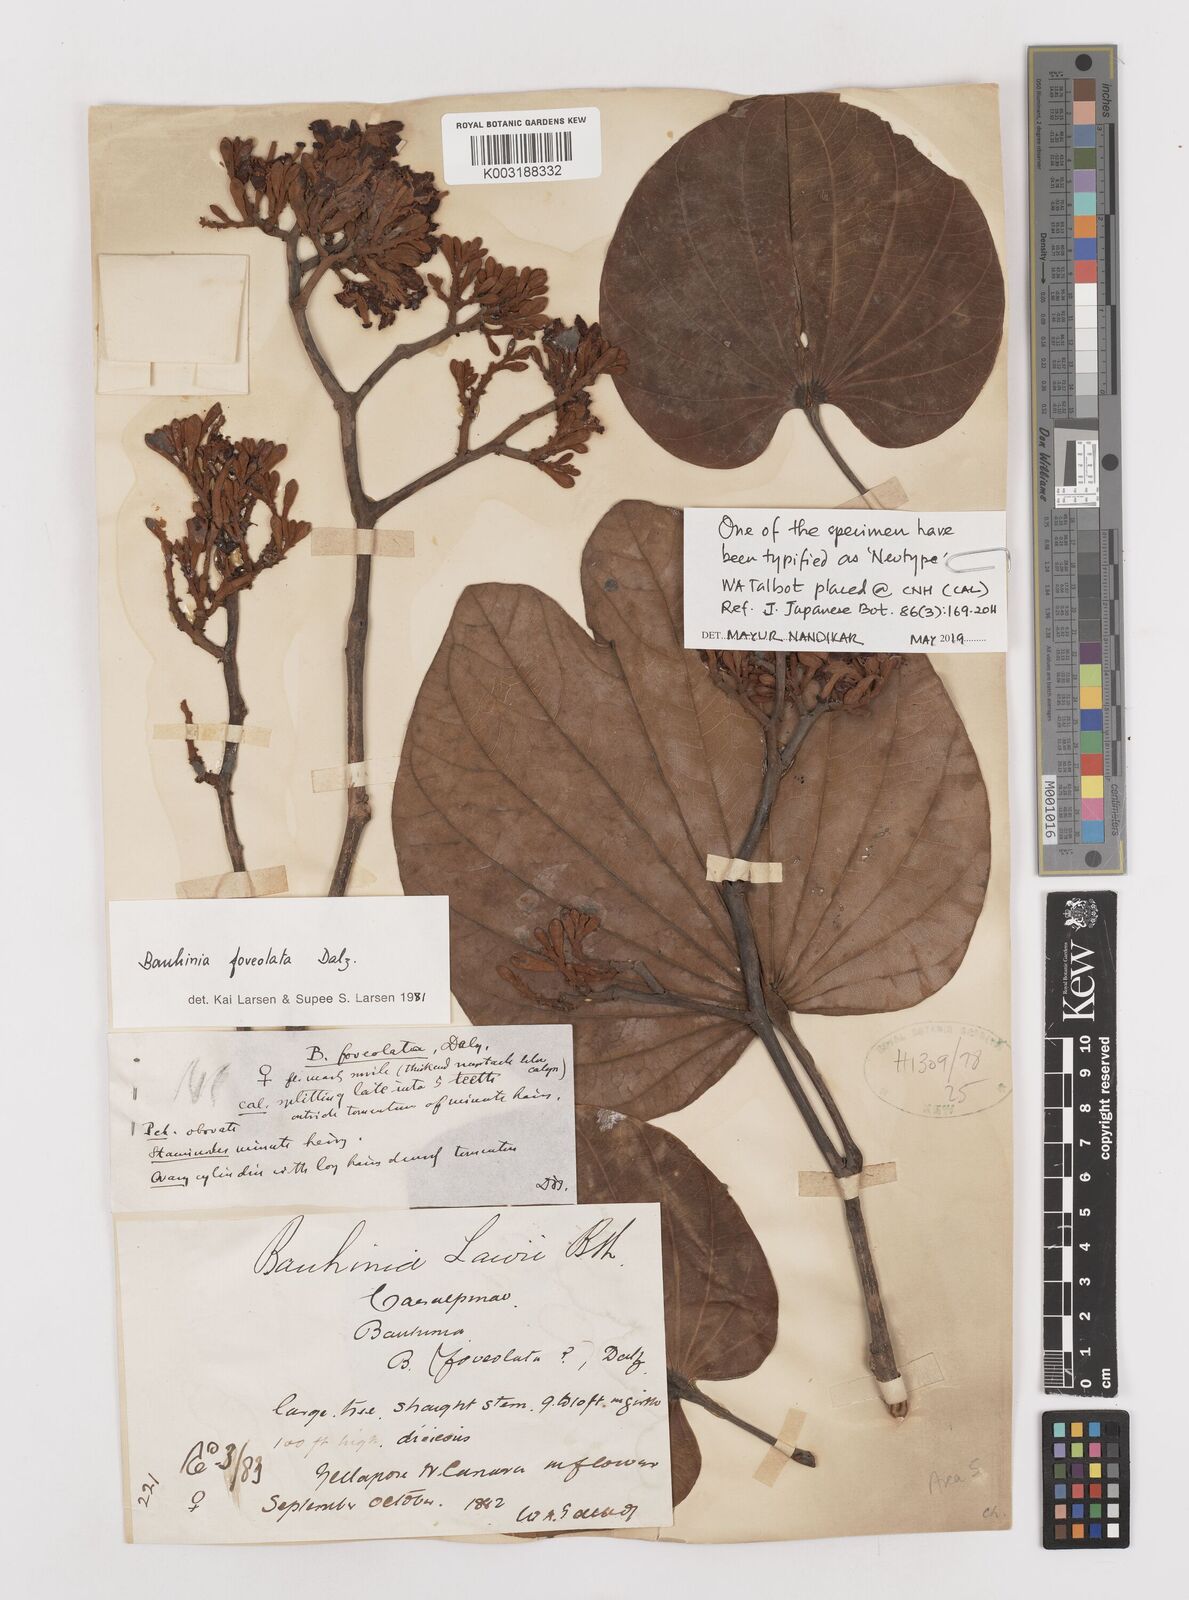 ROYAL BOTANIC GARDENS KEW
K003188332
One of the specimen have
been typified as 'Neotype'
WA Talbot placed @ CNH (CAL)
Ref. J. Japanese Bot. 86(3):169.2011
DET. MAYUR NANDIKAR MAY 2019
Bauhinia foveolata Dalz.
det. Kai Larsen & Supee S. Larsen 1981
B. foveolata, Dalz.
♀ (thickened calyx)
cal. splitting late into 5 teeth
outside tomentum of minute hairs.
Pet. obovate
Staminodes minute hairy.
Ovary cylindric with long hairs tomentum
Bauhinia Lawii Bth.
Bauhinia
B. (foveolata ?), Dalz.
large tree straight stem. 9 to 10 ft. in girth
100 ft high. dioicous
Yellapore N. Canara in flower
September October. 1882
3/83
♀
221
H1309/78
25
KEW
Area 5
Ch.
inches
centimeters
Don Williams
M001016
Kew
Royal Botanic Gardens
copyright reserved
0 1 2 3 4 5 6 7 8 9 10
cm